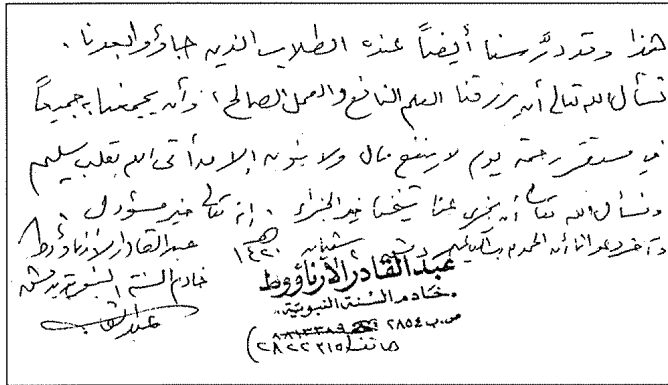 هذا وقد درَّسنا أيضاً عنده الطلاب الذين جاؤوا بعدنا .
نسأل الله تعالى أن يرزقنا العلم النافع والعمل الصالح ، وأن يجمعنا به جميعاً
في مستقر رحمته يوم لا ينفع مال ولا بنون إلا من أتى الله بقلب سليم
ونسأل الله تعالى أن يجزي عنا شيخنا خير الجزاء . إنه تعالى خير مسؤول .
وآخر دعوانا أن الحمد لله رب العالمين دمشق شعبان ١٤٢٠ هـ
عبد القادر الأرناؤوط
خادم السنة النبوية بدمشق
عبد القادر الأرناؤوط
خادم السنة النبوية
ص.ب ٢٨٥٤
هاتف (٢٨٢٢٣١٥)